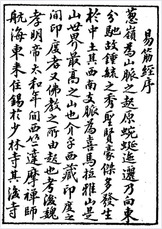 易筋經序
葱嶺為山脈之起原蜿蜒邐迤向東
分馳故鍾綠之秀聖賢豪傑多發生
於中土其西南支脈為喜馬拉雅山是
山世界最高之山也介乎西藏印度之
間印度者又佛教之所由起也考後魏
孝明帝太和年間西竺達摩禪師
航海東來住錫於少林寺其後寺